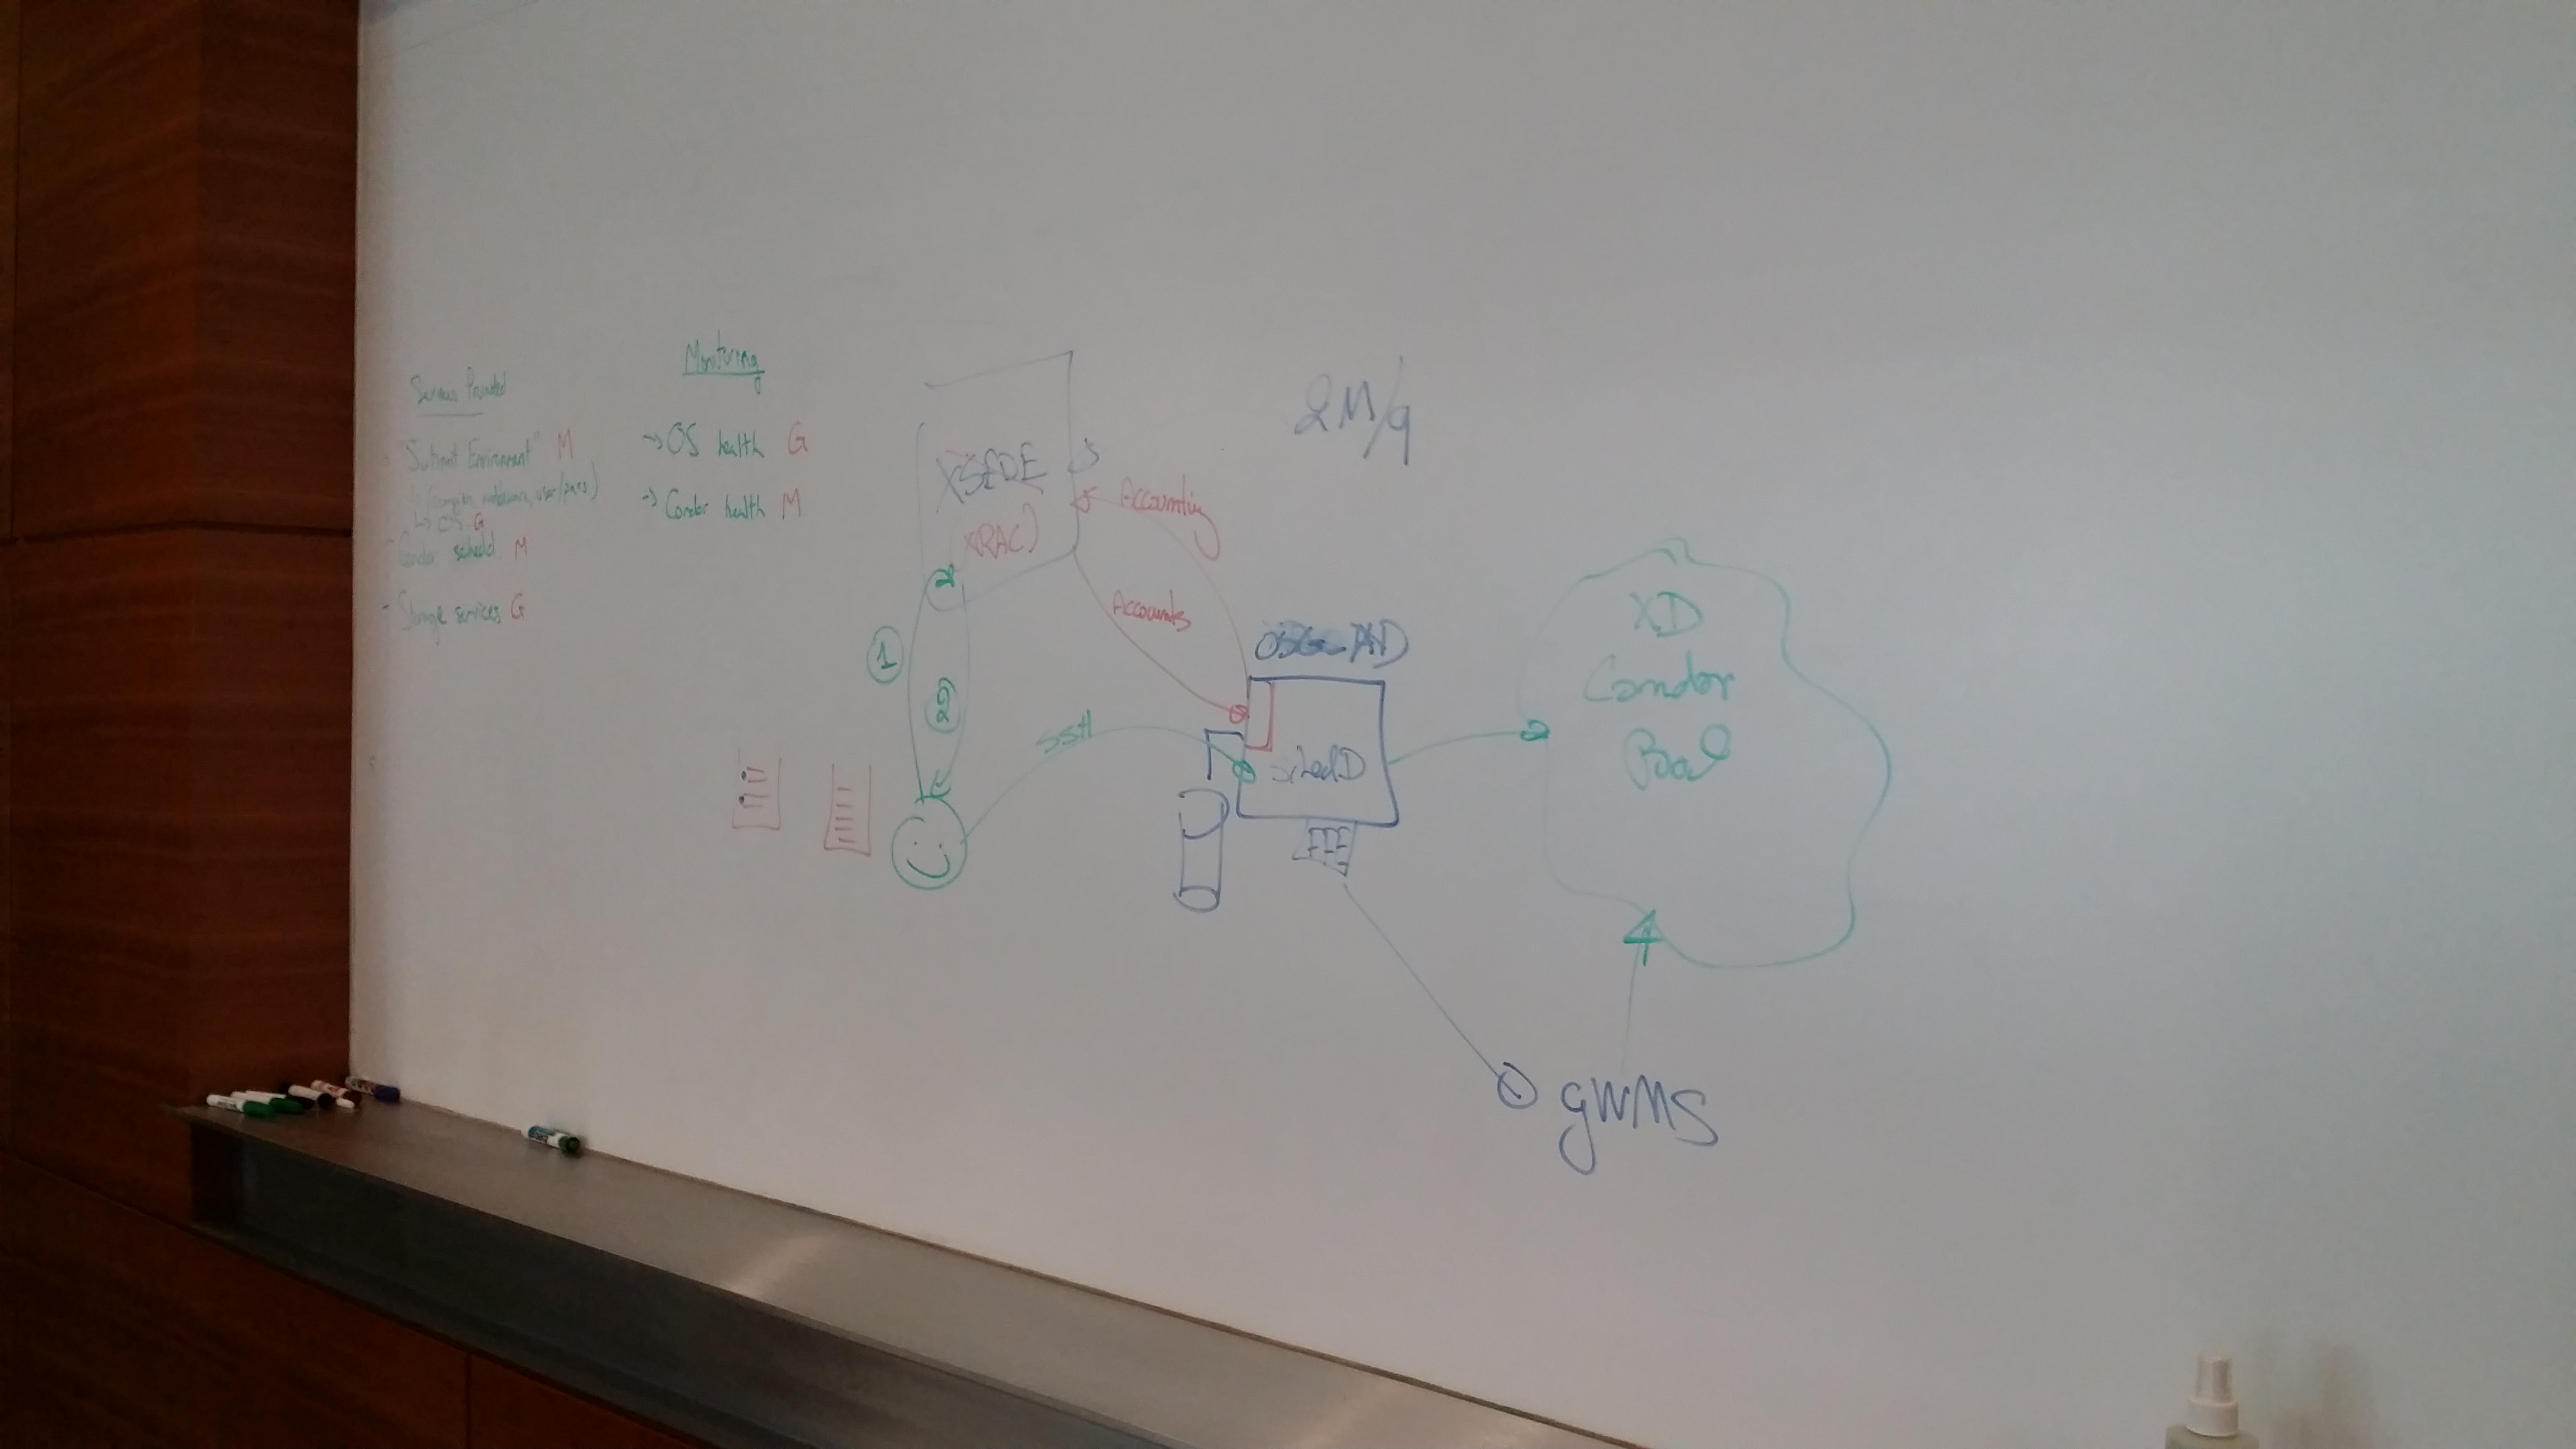 Services Provided
- "Submit Environment" M
(compilers, middleware, user/
↳ OS G
- Condor schedd M
- Storage services G
Monitoring
→ OS health G
→ Condor health M
XSEDE
(XRAC)
Accounting
Accounts
1
2
SSH
2M/q
schedD
XD
Condor
Pool
gWMS